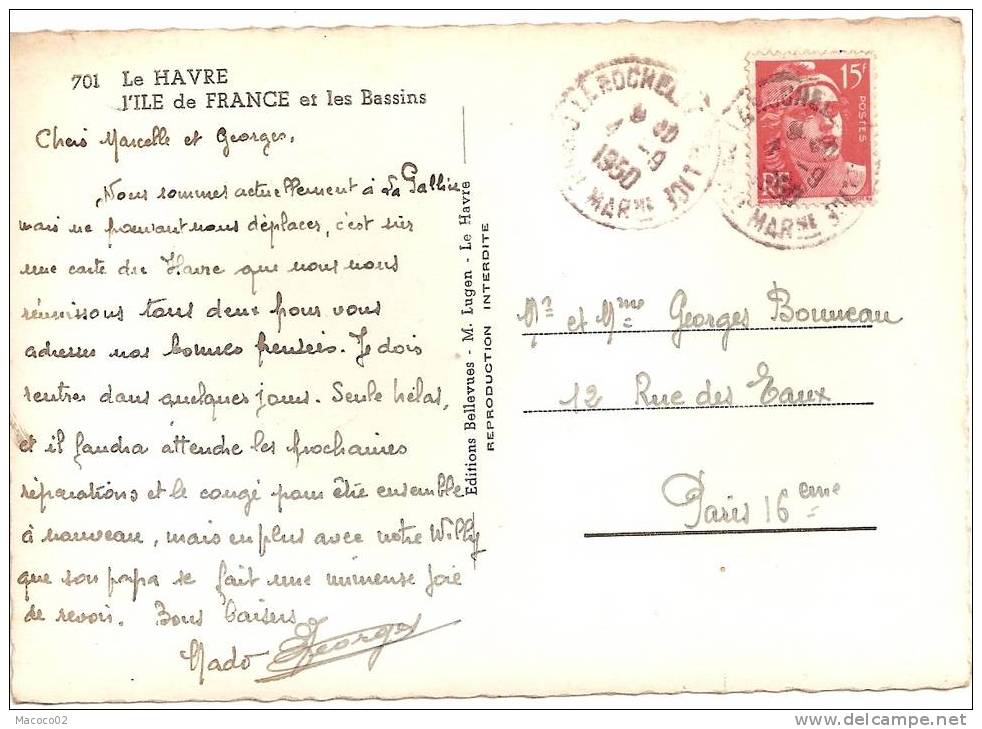 701 Le HAVRE
l'ILE de FRANCE et les Bassins
Chers Marcelle et Georges,
Nous sommes actuellement à La Pallice
mais ne pouvant nous déplacer, c'est sur
une carte du Havre que nous nous
réunissons tous deux pour vous
adresser nos bonnes pensées. Je dois
rentrer dans quelques jours. Seule hélas,
et il faudra attendre les prochaines
réparations et le congé pour être ensemble
à nouveau, mais en plus avec notre Willy
que son papa se fait une immense joie
de revoir. Bons baisers
Mado Georges
Editions Bellevues - M. Lugen - Le Havre
REPRODUCTION INTERDITE
1950
MARME
15f
POSTES
RF
Mr et Mme Georges Bonneau
12 Rue des Eaux
Paris 16eme
Macoco02
www.delcampe.net